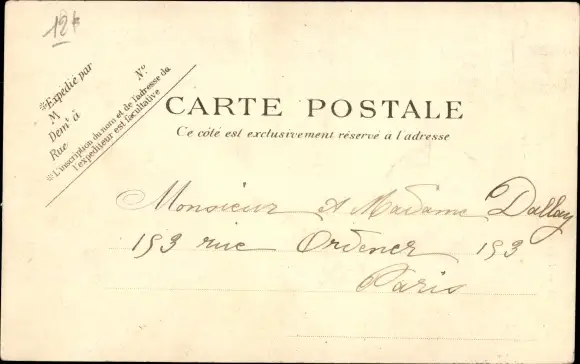 12f
※Expédié par
M
Demt à
Rue
No
※L'inscription du nom et de l'adresse de
l'expéditeur est facultative
CARTE POSTALE
Ce côté est exclusivement réservé à l'adresse
Monsieur et Madame Dallay
193 rue Ordener 193
Paris